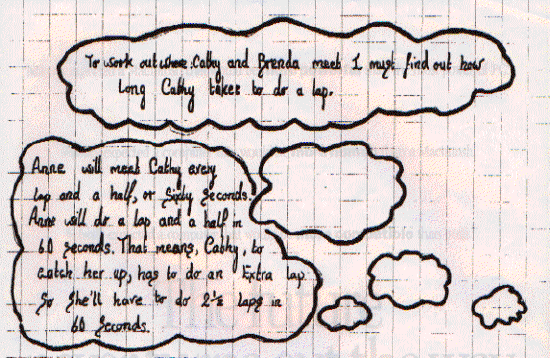 To work out where Cathy and Brenda meet I must find out how
long Cathy takes to do a lap.
Anne will meet Cathy every
lap and a half, or Sixty Seconds.
Anne will do a lap and a half in
60 seconds. That means, Cathy, to
catch her up, has to do an Extra lap
So She'll have to do 2½ laps in
60 Seconds.